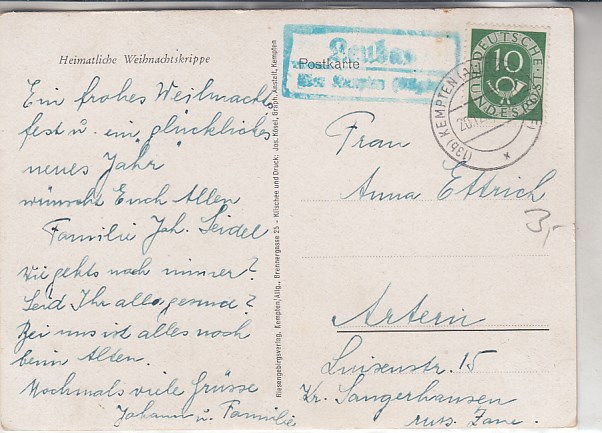 Heimatliche Weihnachtskrippe
Ein frohes Weihnachts
fest u. ein "glückliches
neues Jahr"
wünscht Euch Allen
Familie Joh. Seidel
Wie gehts noch immer?
Seid Ihr alle gesund?
Bei uns ist alles noch
beim Alten.
Nochmals viele Grüsse
Johann u. Familie
Riesengebirgsverlag, Kempten/Allg., Brennergasse 25 - Klischee und Druck: Jos. Kösel, Graph. Anstalt, Kempten
Postkarte
Kempten
DEUTSCHE
BUNDESPOST
10
(13b) KEMPTEN
Frau
Anna Ettrich
3,-
Artern
Luisenstr. 15
Kr. Sangerhausen
russ. Zone.